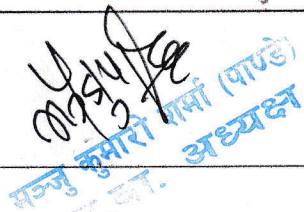 मञ्जु कुमारी शर्मा (पाण्डे)
का. अध्यक्ष